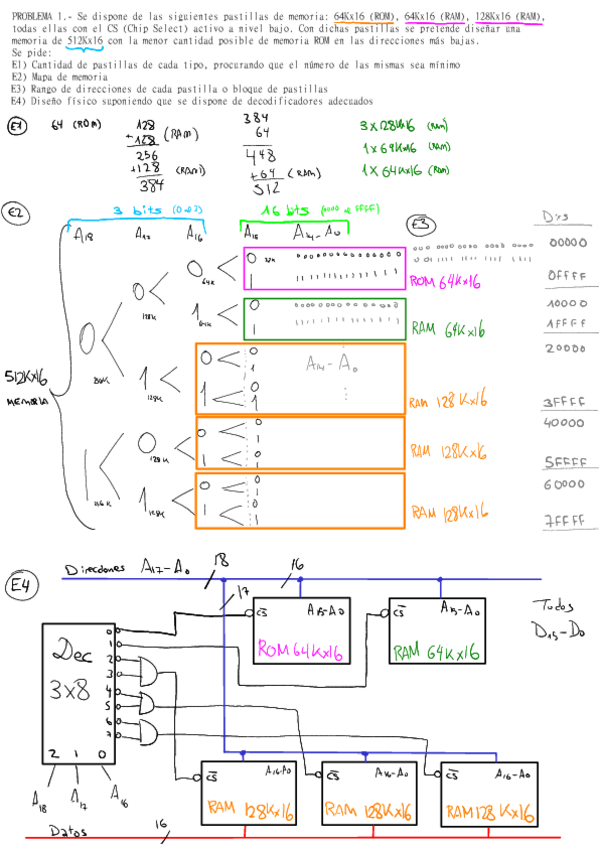 PROBLEMA 1.- Se dispone de las siguientes pastillas de memoria: 64Kx16 (ROM), 64Kx16 (RAM), 128Kx16 (RAM),
todas ellas con el CS (Chip Select) activo a nivel bajo. Con dichas pastillas se pretende diseñar una
memoria de 512Kx16 con la menor cantidad posible de memoria ROM en las direcciones más bajas.
Se pide:
E1) Cantidad de pastillas de cada tipo, procurando que el número de las mismas sea mínimo
E2) Mapa de memoria
E3) Rango de direcciones de cada pastilla o bloque de pastillas
E4) Diseño físico suponiendo que se dispone de decodificadores adecuados
E1
64 (ROM)
128
+128 (RAM)
256
+128 (RAM)
384
384
64
448
+64 (RAM)
512
3x128Kx16 (RAM)
1x64Kx16 (RAM)
1x64Kx16 (RAM)
E2
3 bits
16 bits (0000 a FFFF)
E3
A18 A17 A16 A15 A14-A0
512Kx16
MEMORIA
0
0
0
64K
0
1
ROM 64Kx16
00000
0FFFF
128K
1
64K
0
1
RAM 64Kx16
10000
1FFFF
1
128K
0
1
0
1
0
1
A14-A0
RAM 128Kx16
20000
3FFFF
1
0
128K
0
1
0
1
0
1
RAM 128Kx16
40000
5FFFF
1
128K
0
1
0
1
0
1
RAM 128Kx16
60000
7FFFF
E4
Direcciones A17-A0
18
16
17
Dec
3x8
0
1
2
3
4
5
6
7
2 1 0
A18 A17 A16
CS A15-A0
ROM 64Kx16
CS A15-A0
RAM 64Kx16
Todos
D15-D0
CS A16-A0
RAM 128Kx16
CS A16-A0
RAM 128Kx16
CS A16-A0
RAM 128Kx16
Datos
16